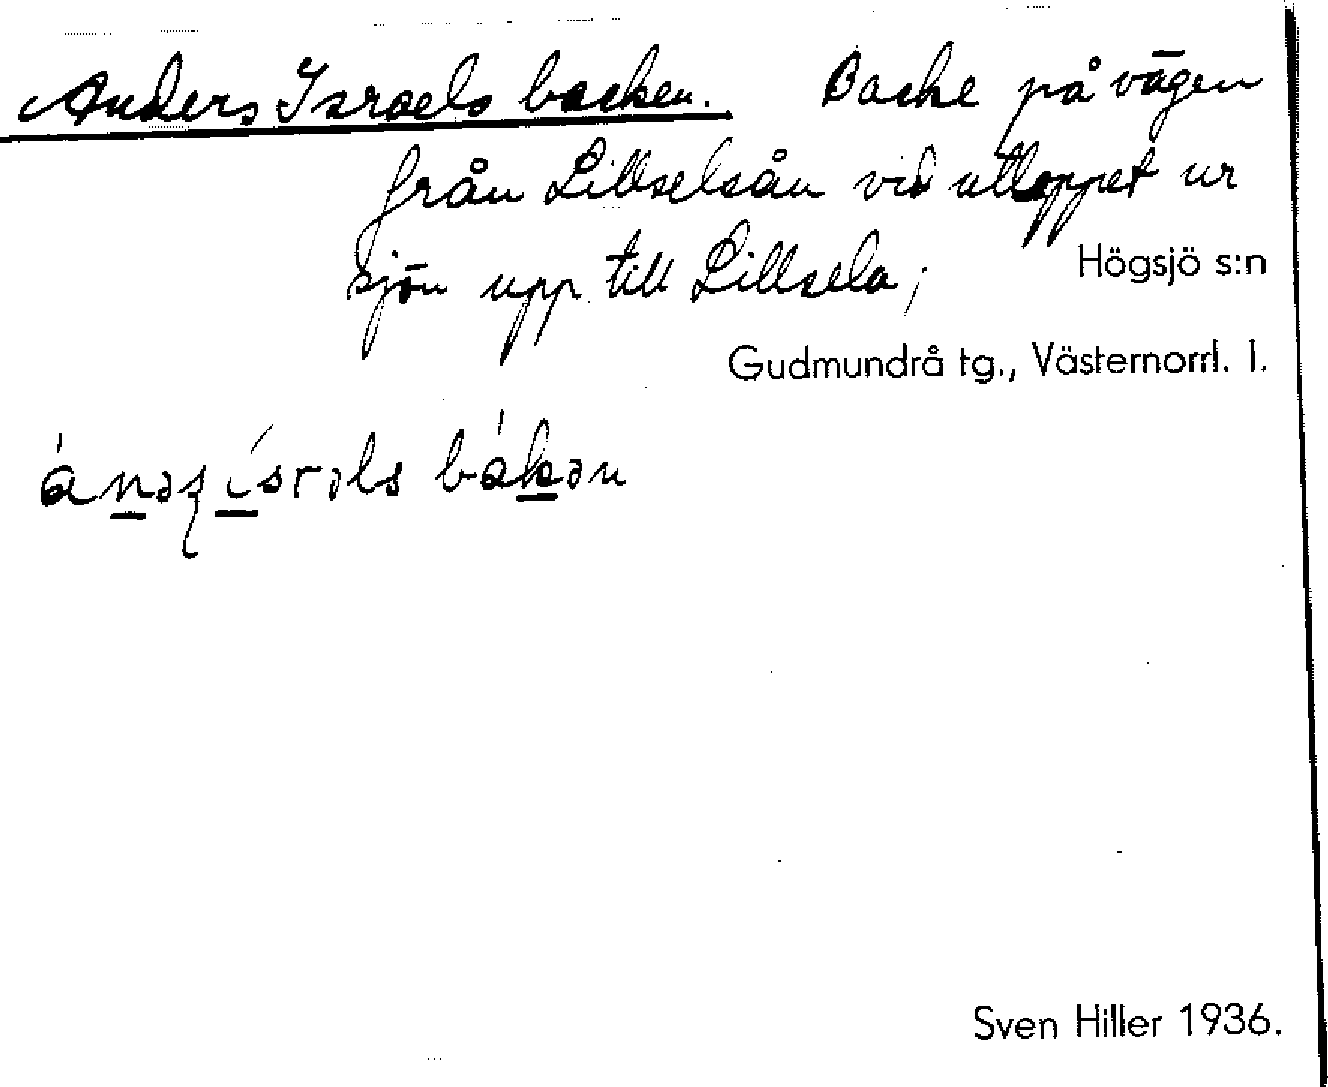 Anders Israels backen. Backe på vägen
från Lillselsån vid utloppet ur
sjön upp till Lillsela;
Högsjö s:n
Gudmundrå tg., Västernorrl. l.
ánəʂ ísrəls bákən
Sven Hiller 1936.